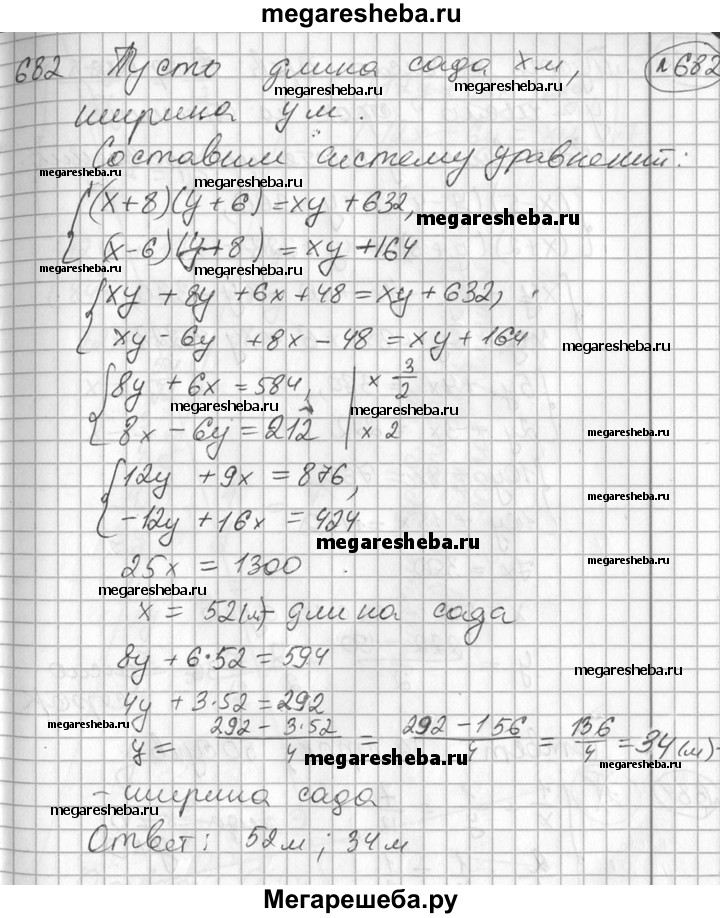 megaresheba.ru
682 Пусть длина сада x м, №682
megaresheba.ru megaresheba.ru
ширина y м.
Составим систему уравнений:
megaresheba.ru megaresheba.ru
(x+8)(y+6)=xy+632,
megaresheba.ru
(x-6)(y+8)=xy+164
megaresheba.ru megaresheba.ru
xy+8y+6x+48=xy+632,
xy-6y+8x-48=xy+164
megaresheba.ru
8y+6x=584, | x 3/2
megaresheba.ru megaresheba.ru
8x-6y=212 | x 2
12y+9x=876,
megaresheba.ru
-12y+16x=424
megaresheba.ru
25x=1300
megaresheba.ru
megaresheba.ru
x=52(м)- длина сада
8y+6·52=594
megaresheba.ru
4y+3·52=292
megaresheba.ru
y=(292-3·52)/4=(292-156)/4=136/4=34(м)-
megaresheba.ru megaresheba.ru
- ширина сада
megaresheba.ru
Ответ: 52м; 34м
Мегарешеба.ру